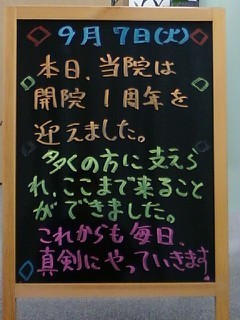 9月7日(火)
本日、当院は
開院1周年を
迎えました。
多くの方に支えら
れ、ここまで来ること
ができました。
これからも毎日、
真剣にやっていきます